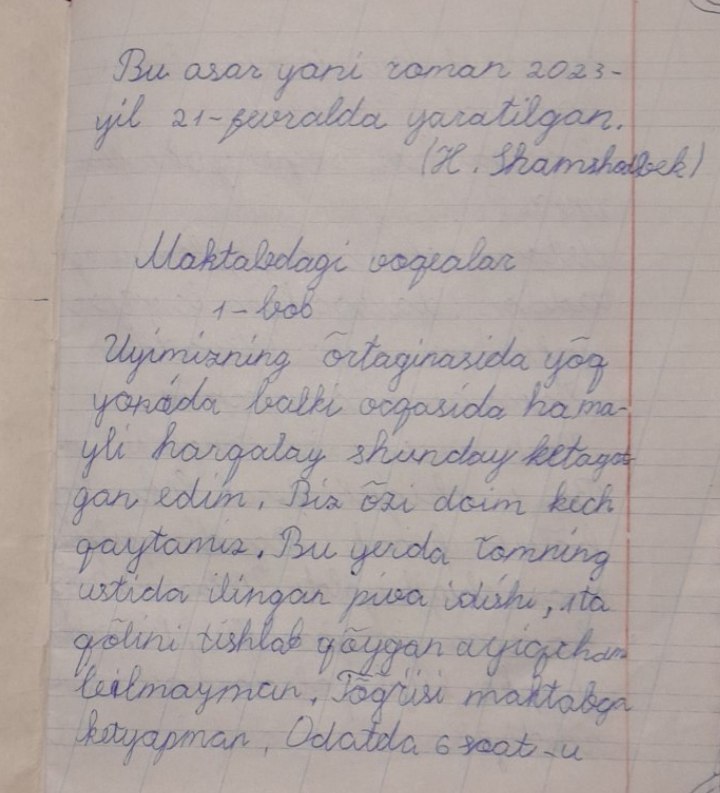 Bu asar yani roman 2023-
yil 21-fevralda yaratilgan.
(H. Shamshodbek)
Maktabdagi voqealar
1-bob
Uyimizning õrtaginasida yõq
yonida balki orqasida hama-
yli harqalay shunday ketayot
gan edim. Biz õzi doim kech
qaytamiz. Bu yerda tomning
ustida ilingan piva idishi, 1ta
qõlini tishlab qõygan ayiqcham
bilmayman. Tõğrisi maktabga
ketyapman. Odatda 6 soat-u